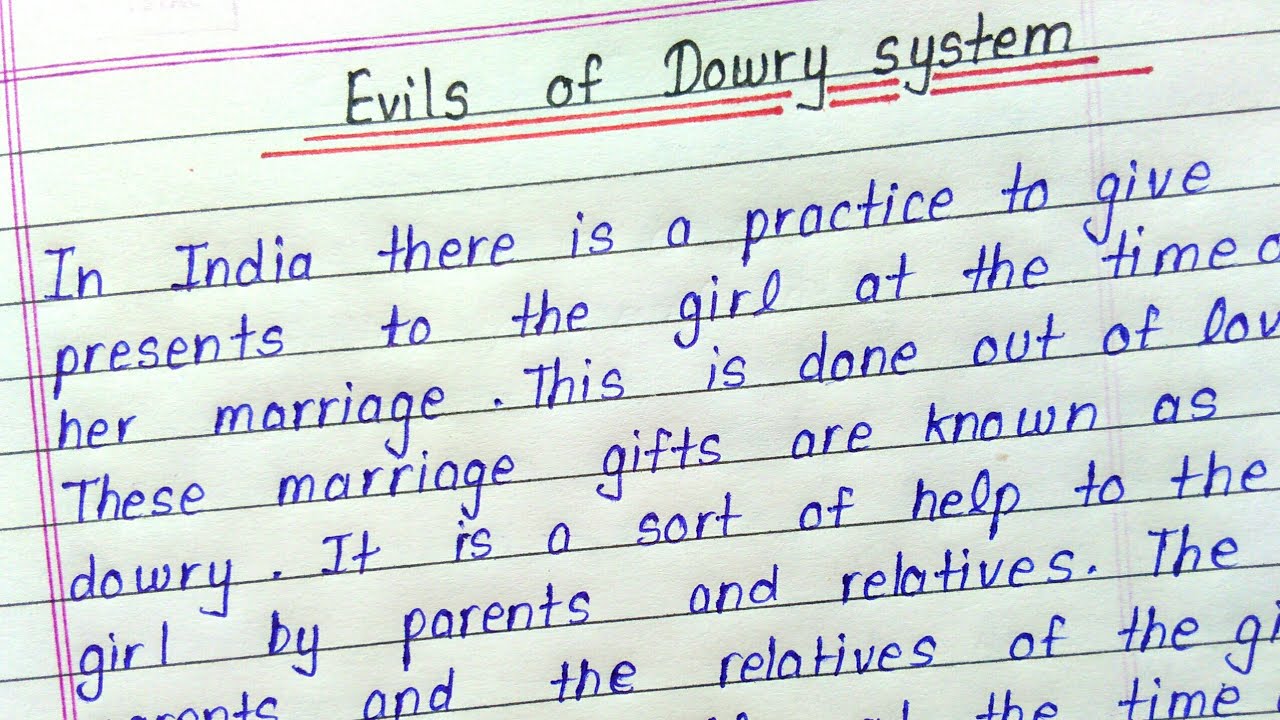 Evils of Dowry system
In India there is a practice to give
presents to the girl at the time
her marriage. This is done out of
These marriage gifts are known as
dowry. It is a sort of help to the
girl by parents and relatives. The
and the relatives of the
the time